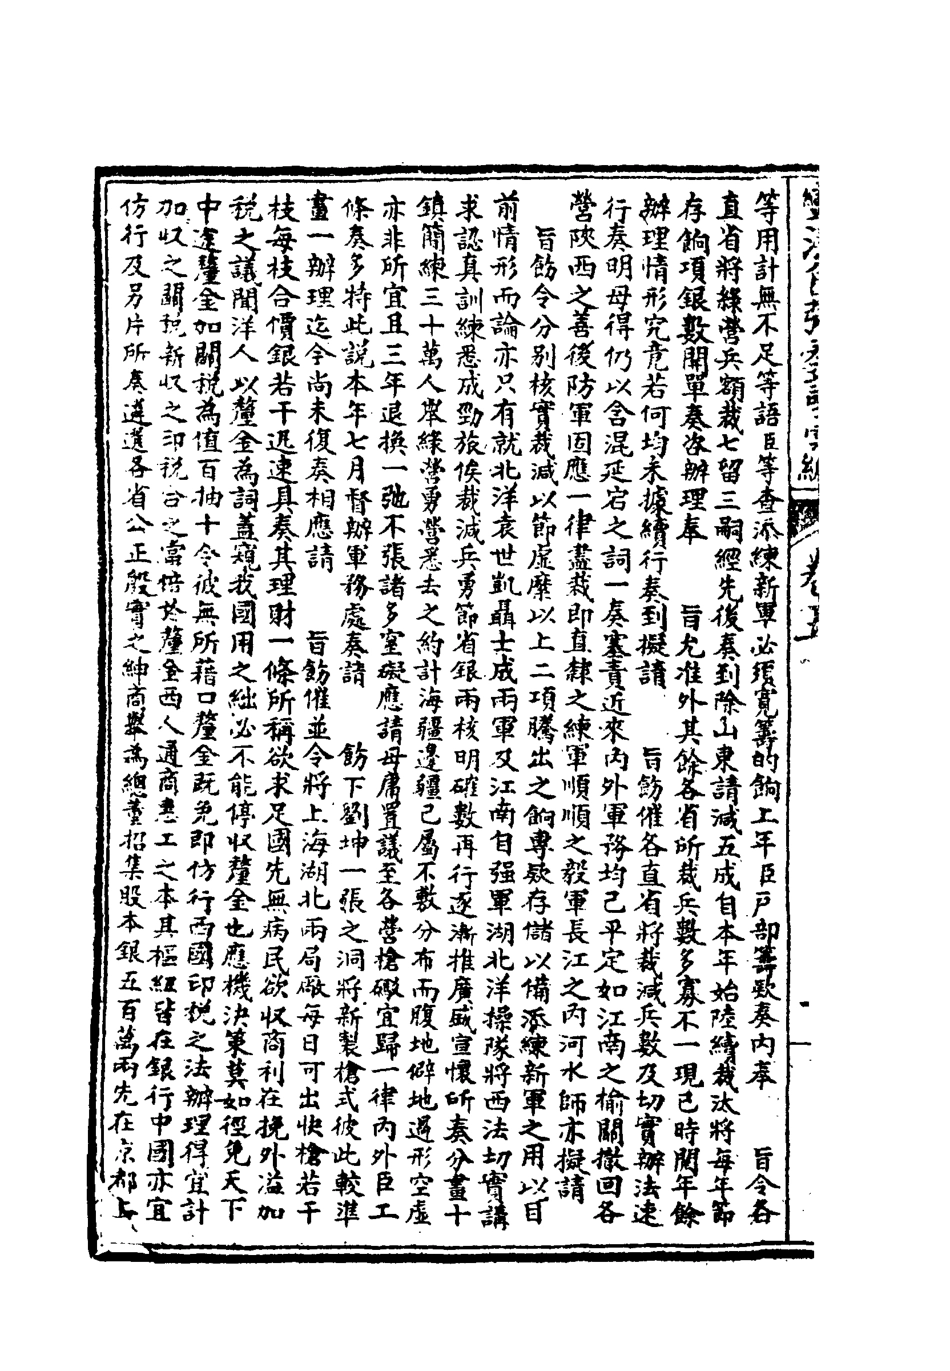 等用計無不足等語臣等查添練新軍必須寬籌的餉上年臣戶部籌款奏內奉　旨令各
直省將綠營兵額裁七留三嗣經先後奏到除山東請減五成自本年始陸續裁汰將每年節
存餉項銀數開單奏咨辦理奉　旨允准外其餘各省所裁兵數多寡不一現已時閱年餘
辦理情形究竟若何均未據續行奏到擬請　旨飭催各直省將裁減兵數及切實辦法速
行奏明毋得仍以含混延宕之詞一奏塞責近來內外軍務均已平定如江南之榆關撤回各
營陝西之善後防軍固應一律盡裁即直隸之練軍順順之毅軍長江之內河水師亦擬請
旨飭令分別核實裁減以節虛糜以上二項騰出之餉專款存儲以備添練新軍之用以目
前情形而論亦只有就北洋袁世凱聶士成兩軍及江南自强軍湖北洋操隊將西法切實講
求認真訓練悉成勁旅俟裁減兵勇節省銀兩核明確數再行逐漸推廣咸宣懷所奏分畫十
鎮簡練三十萬人舉綠營勇營悉去之約計海疆邊疆已屬不敷分布而腹地僻地過形空虛
亦非所宜且三年退換一弛不張諸多窒礙應請毋庸置議至各營槍礟宜歸一律內外臣工
條奏多持此說本年七月督辦軍務處奏請　飭下劉坤一張之洞將新製槍式彼此較準
畫一辦理迄今尚未復奏相應請　旨飭催並令將上海湖北兩局廠每日可出快槍若干
枝每枝合價銀若干迅速具奏其理財一條所稱欲求足國先無病民欲收商利在挽外溢加
稅之議聞洋人以釐金為詞蓋窺我國用之絀必不能停收釐金也應機決策莫如徑免天下
中途釐金如關稅為值百抽十令彼無所藉口釐金既免即仿行西國印稅之法辦理得宜計
加收之關稅新收之印稅合之當倍於釐金西人通商惠工之本其樞紐皆在銀行中國亦宜
仿行及另片所奏遴選各省公正殷實之紳商舉為總董招集股本銀五百萬兩先在京都上